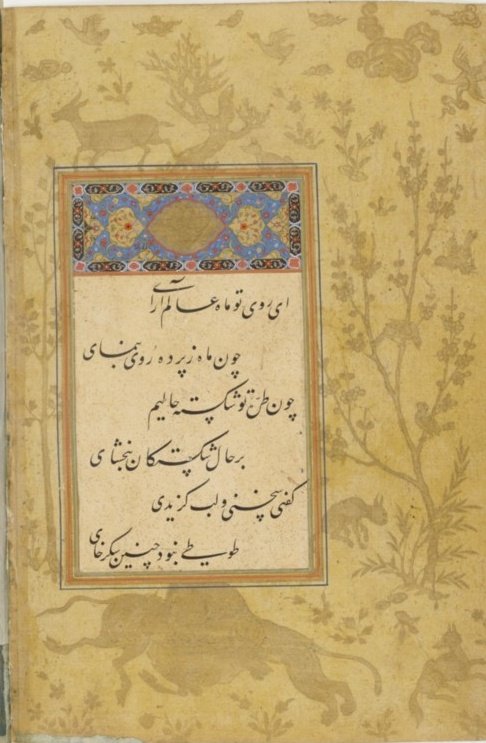 ای روی تو ماه عالم آرای
چون ماه ز پرده روی بنمای
چون طرهٔ تو شکسته حالیم
بر حال شکستگان ببخشای
گفتی سخنی و لب گزیدی
طوطی نبود چنین شکرخای